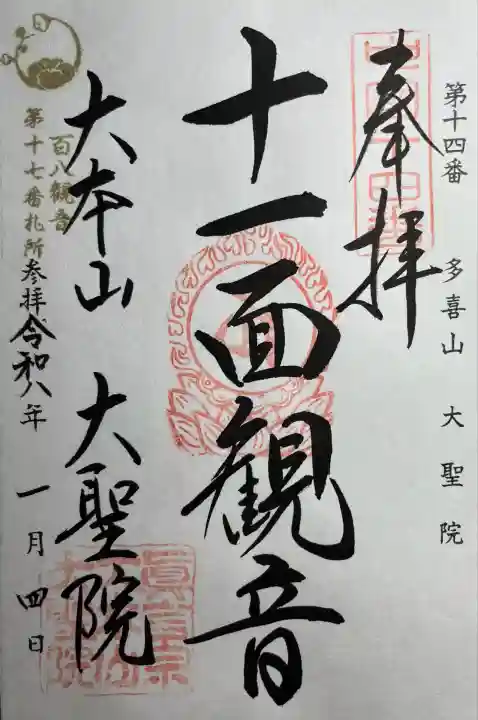 第十四番 多喜山 大聖院
奉拝
十一面観音
大本山 大聖院
百八観音
第十七番札所
参拝令和八年一月四日